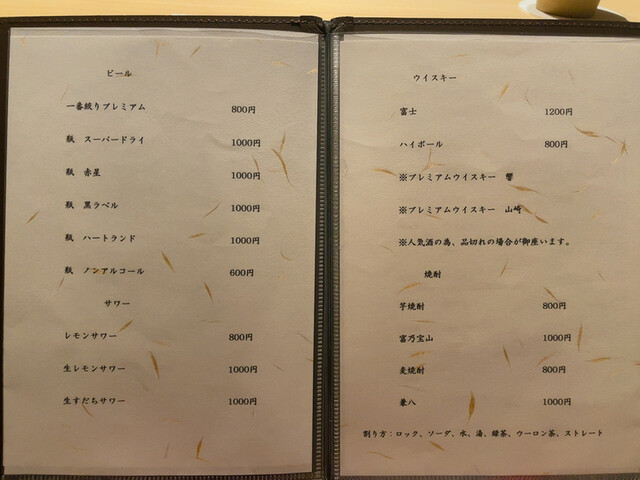 ビール
一番絞りプレミアム 800円
瓶 スーパードライ 1000円
瓶 赤星 1000円
瓶 黒ラベル 1000円
瓶 ハートランド 1000円
瓶 ノンアルコール 600円
サワー
レモンサワー 800円
生レモンサワー 1000円
生すだちサワー 1000円
ウイスキー
富士 1200円
ハイボール 800円
※プレミアムウイスキー 響
※プレミアムウイスキー 山崎
※人気酒の為、品切れの場合が御座います。
焼酎
芋焼酎 800円
富乃宝山 1000円
麦焼酎 800円
兼八 1000円
割り方:ロック、ソーダ、水、湯、緑茶、ウーロン茶、ストレート